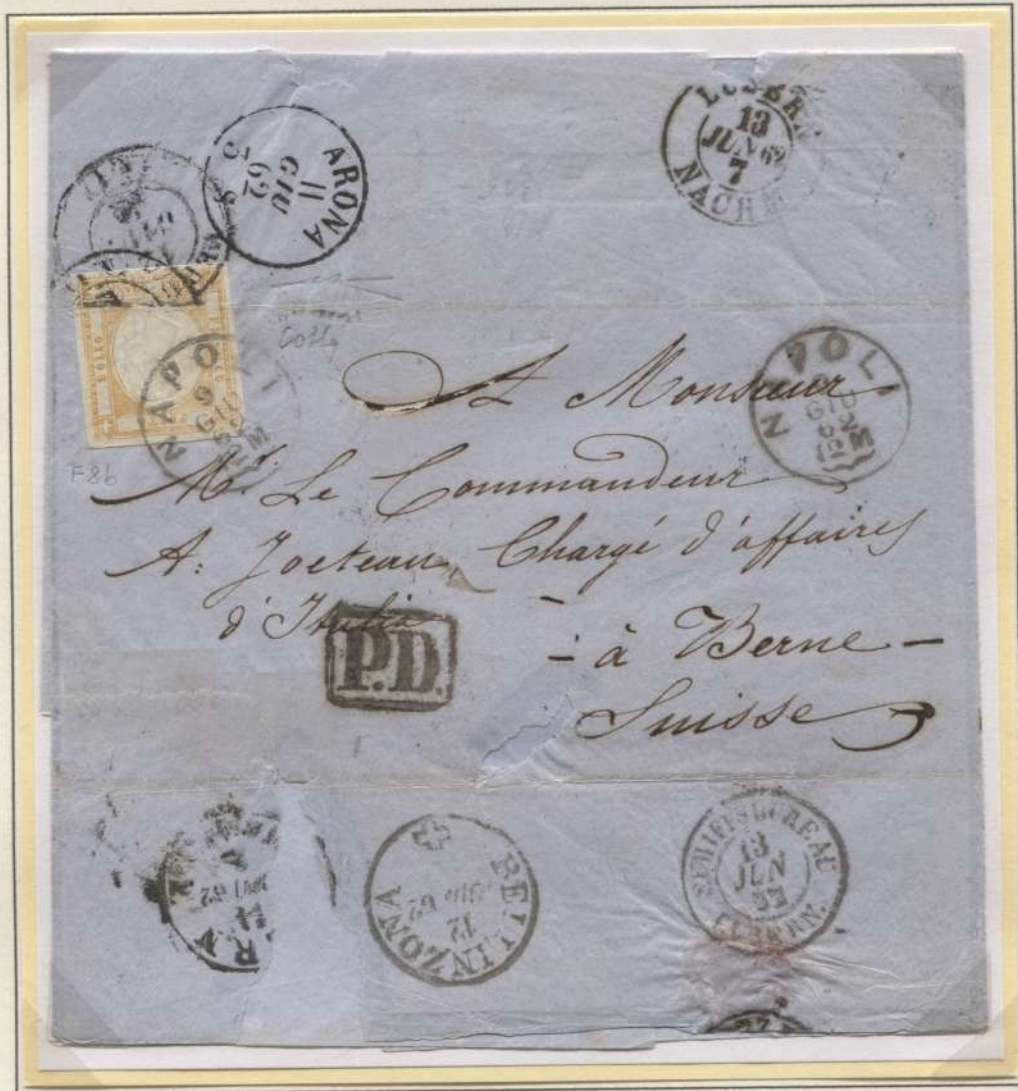 ARONA
11
GIU
62
LUZERN
13
JUN 62
7
NACHM
BOLLO
Coll
NAPOLI
9
GIU
NAPOLI
GIU
F8b
A Monsieur
Mr. Le Commandeur
A: Jocteau, Chargé d'affaires
d'Italie
P.D.
- à Berne -
Suisse
BELLINZONA
12
JUIN 62
SCHIFFSBUREAU
13
JUN
62
LUZERN.